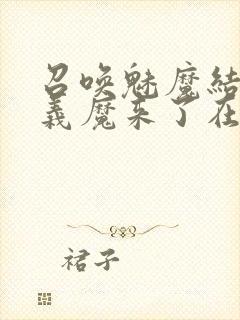 召唤魅魔结
义魔来了在
裙子